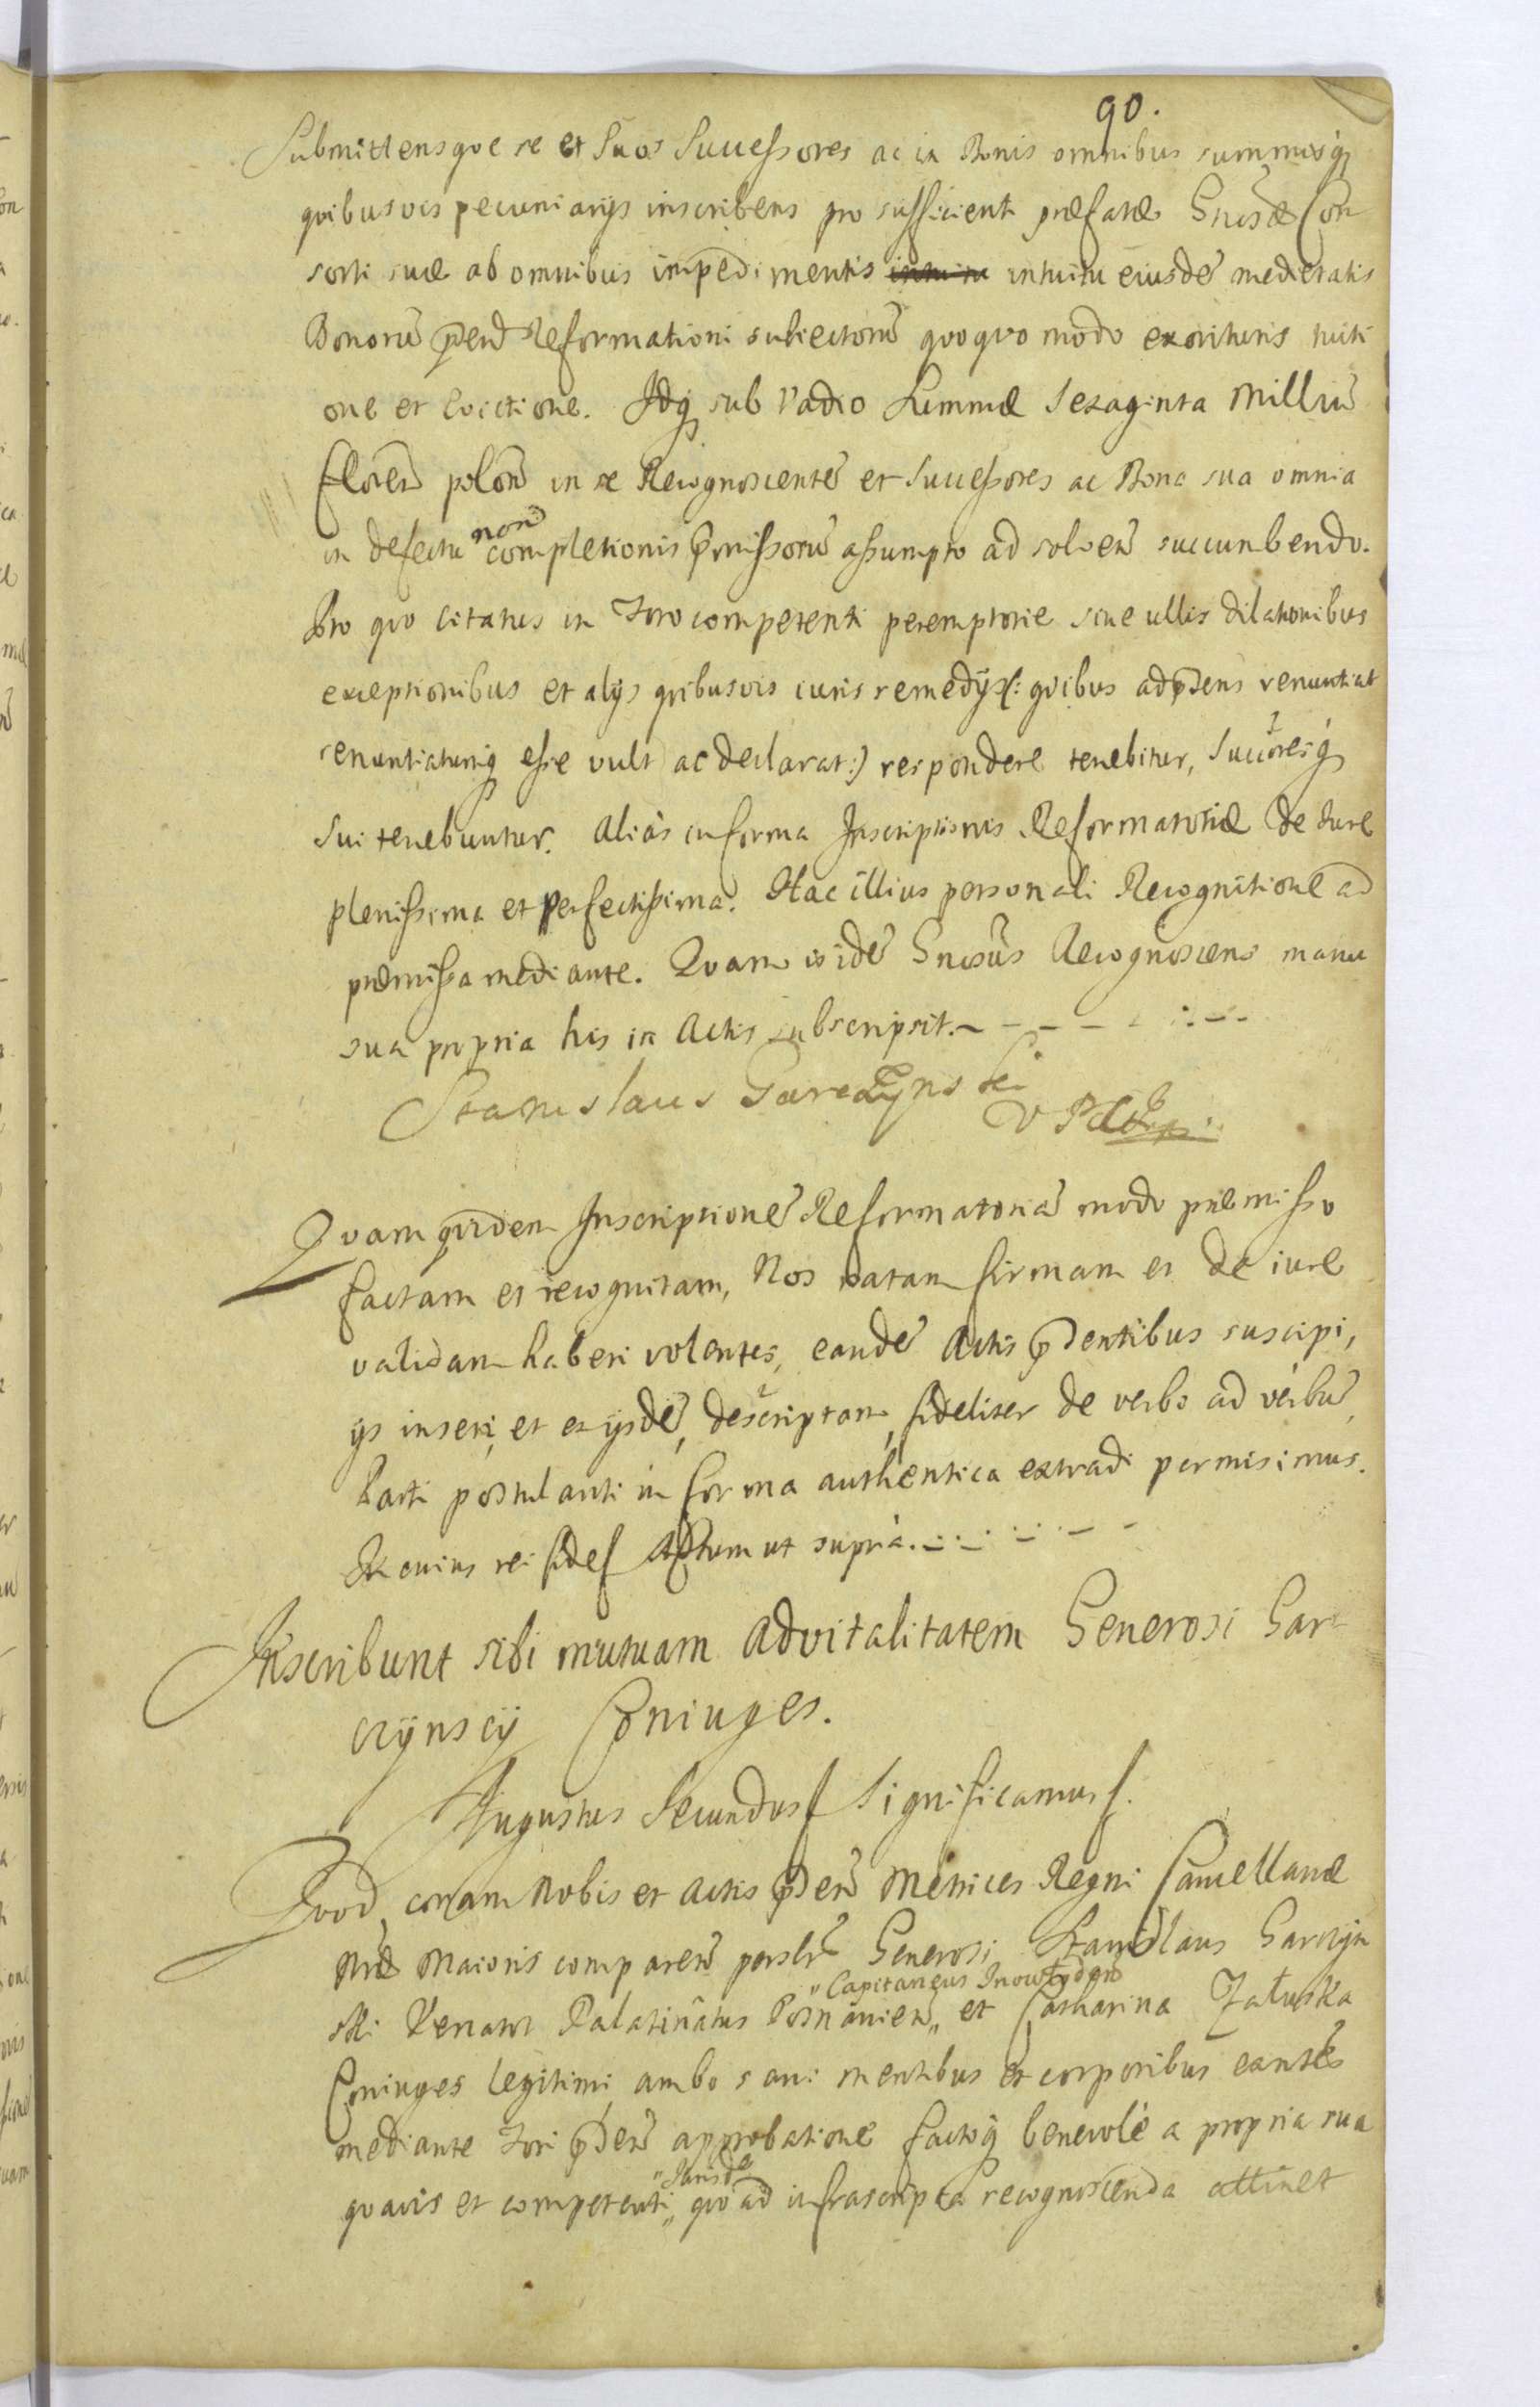 90.
Submittensque se et Suos Successores ac in Bonis omnibus summisq3
quibusvis pecuniarijs inscribens pro sufficienti præfatæ Gnosæ Con
sorti suæ ab omnibus impedimentis intuitu eiusdē medietatis
Bonorū pñti Reformationi subiectorū quoquo modo exorituris tuiti
one et Evictione. Idq3 sub Vadio Summæ Sexaginta Milliū
floreñ poloñ in se Recognoscentē et Successores ac Bona sua omnia
in defectu non completionis pmissorū assumpto ad solveñ succumbendo.
Pro quo citatus in Foro competenti peremptorie sine ullis dilationibus
exceptionibus et alijs quibusvis iuris remedijs (: quibus ad pñsens renuntiat
renuntiatumq3 esse vult ac declarat:) respondere tenebitur, Succōresq3
sui tenebuntur. Aliàs in forma Inscriptionis Reformatoriæ de Iure
plenissima et perfectissima. Hac illius personali Recognitione ad
præmissa mediante. Quam is idē Gnosūs Recognoscens manu
sua propria his in Actis subscripsit.
Stanislaus Garczynski
Quam quidem Inscriptionē Reformatoriā modo præmisso
factam et recognitam, Nos ratam firmam et de iure
validam haberi volentes, eandē Actis pñtibus suscipi,
ijs inseri, et ex ijsdē, descriptam, fideliter de verbo ad verbū,
Parti postulanti in forma authentica extradi permisimus.
In cuius rei fidē Actum ut suprà.
Inscribunt sibi mutuam advitalitatem Generosi Gar
czynscy Coniuges.
Augustus Secundus Significamus.
Quod coram Nobis et Actis pñti Metrices Regni Cancellariæ
Nræ Maioris compareñ psonlr̄ Generosi Stanislaus Garczyn
"Capitaneus Inowłoden
ski Venator Palatinatus Posnanień" et Catharina Załuska
Coniuges legitimi ambo sani mentibus et corporibus exantēs
mediante Fori pñti approbatione factoq3 benevolè a propria sua
"Jurisde
quavis et competenti" quo ad infrascripta recognoscenda attinet